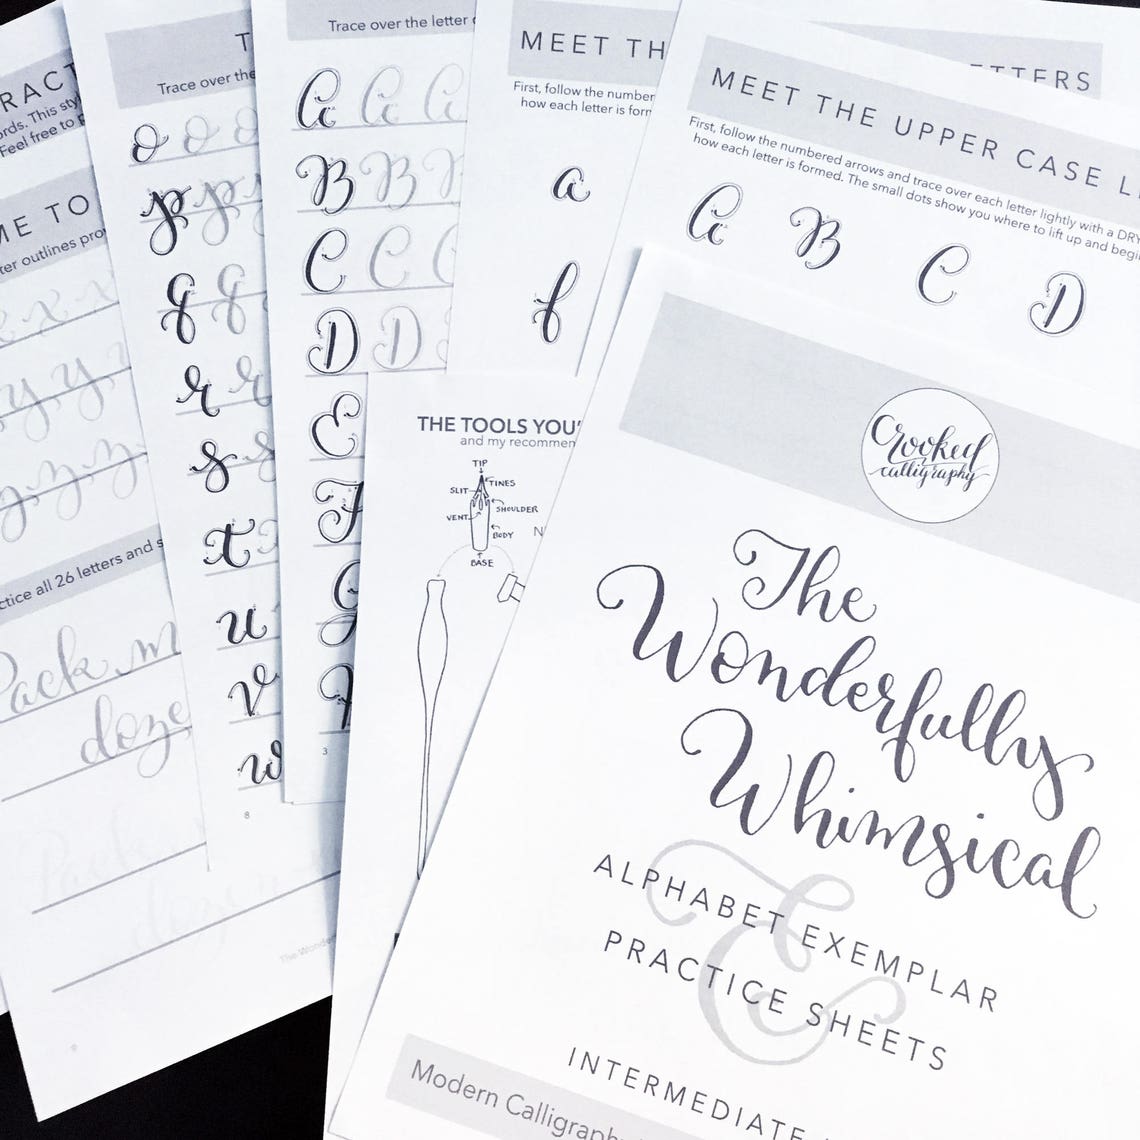 RACT
ords. This sty
Feel free to
ME TO
ter outlines pro
x x
y y y
z z z
ctice all 26 letters and s
Pack m
doze
9
T
Trace over the
o o o
p p p
q q
r r
s s
t t
u
v
w
8
The Wonder
Trace over the letter o
A A A
B B B
C C C
D D D
E
F
G
H
3
MEET TH
First, follow the number
how each letter is form
a
f
ETTERS
MEET THE UPPER CASE L
First, follow the numbered arrows and trace over each letter lightly with a DRY
how each letter is formed. The small dots show you where to lift up and begi
A B C D
THE TOOLS YOU'
and my recommen
TIP
SLIT
TINES
VENT
SHOULDER
BODY
N
BASE
Crooked
calligraphy
The
Wonderfully
Whimsical
&
ALPHABET EXEMPLAR
PRACTICE SHEETS
INTERMEDIATE
Modern Calligraphy